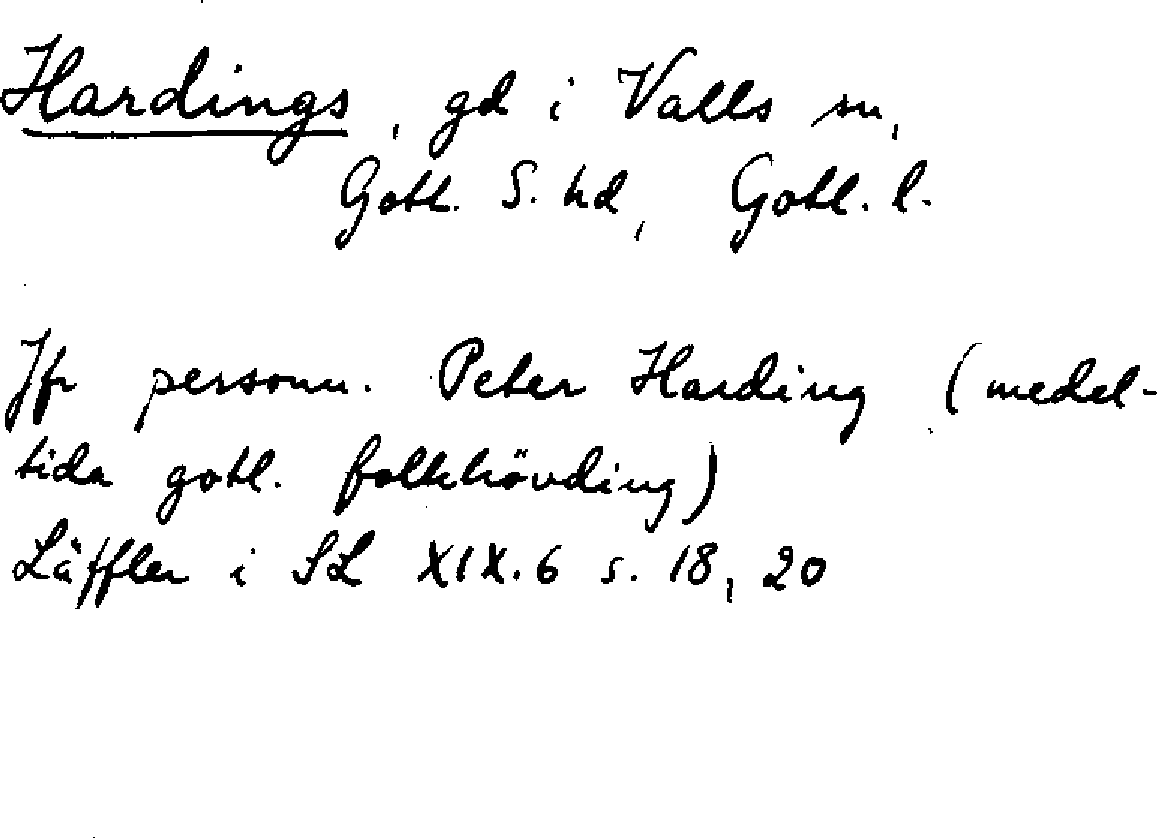 Hardings, gd i Valls sn,
Gotl. S. hd, Gotl. l.
Jfr personn. Peter Harding (medel-
tida gotl. folkhövding)
Läffler i SL XIX.6 s. 18, 20